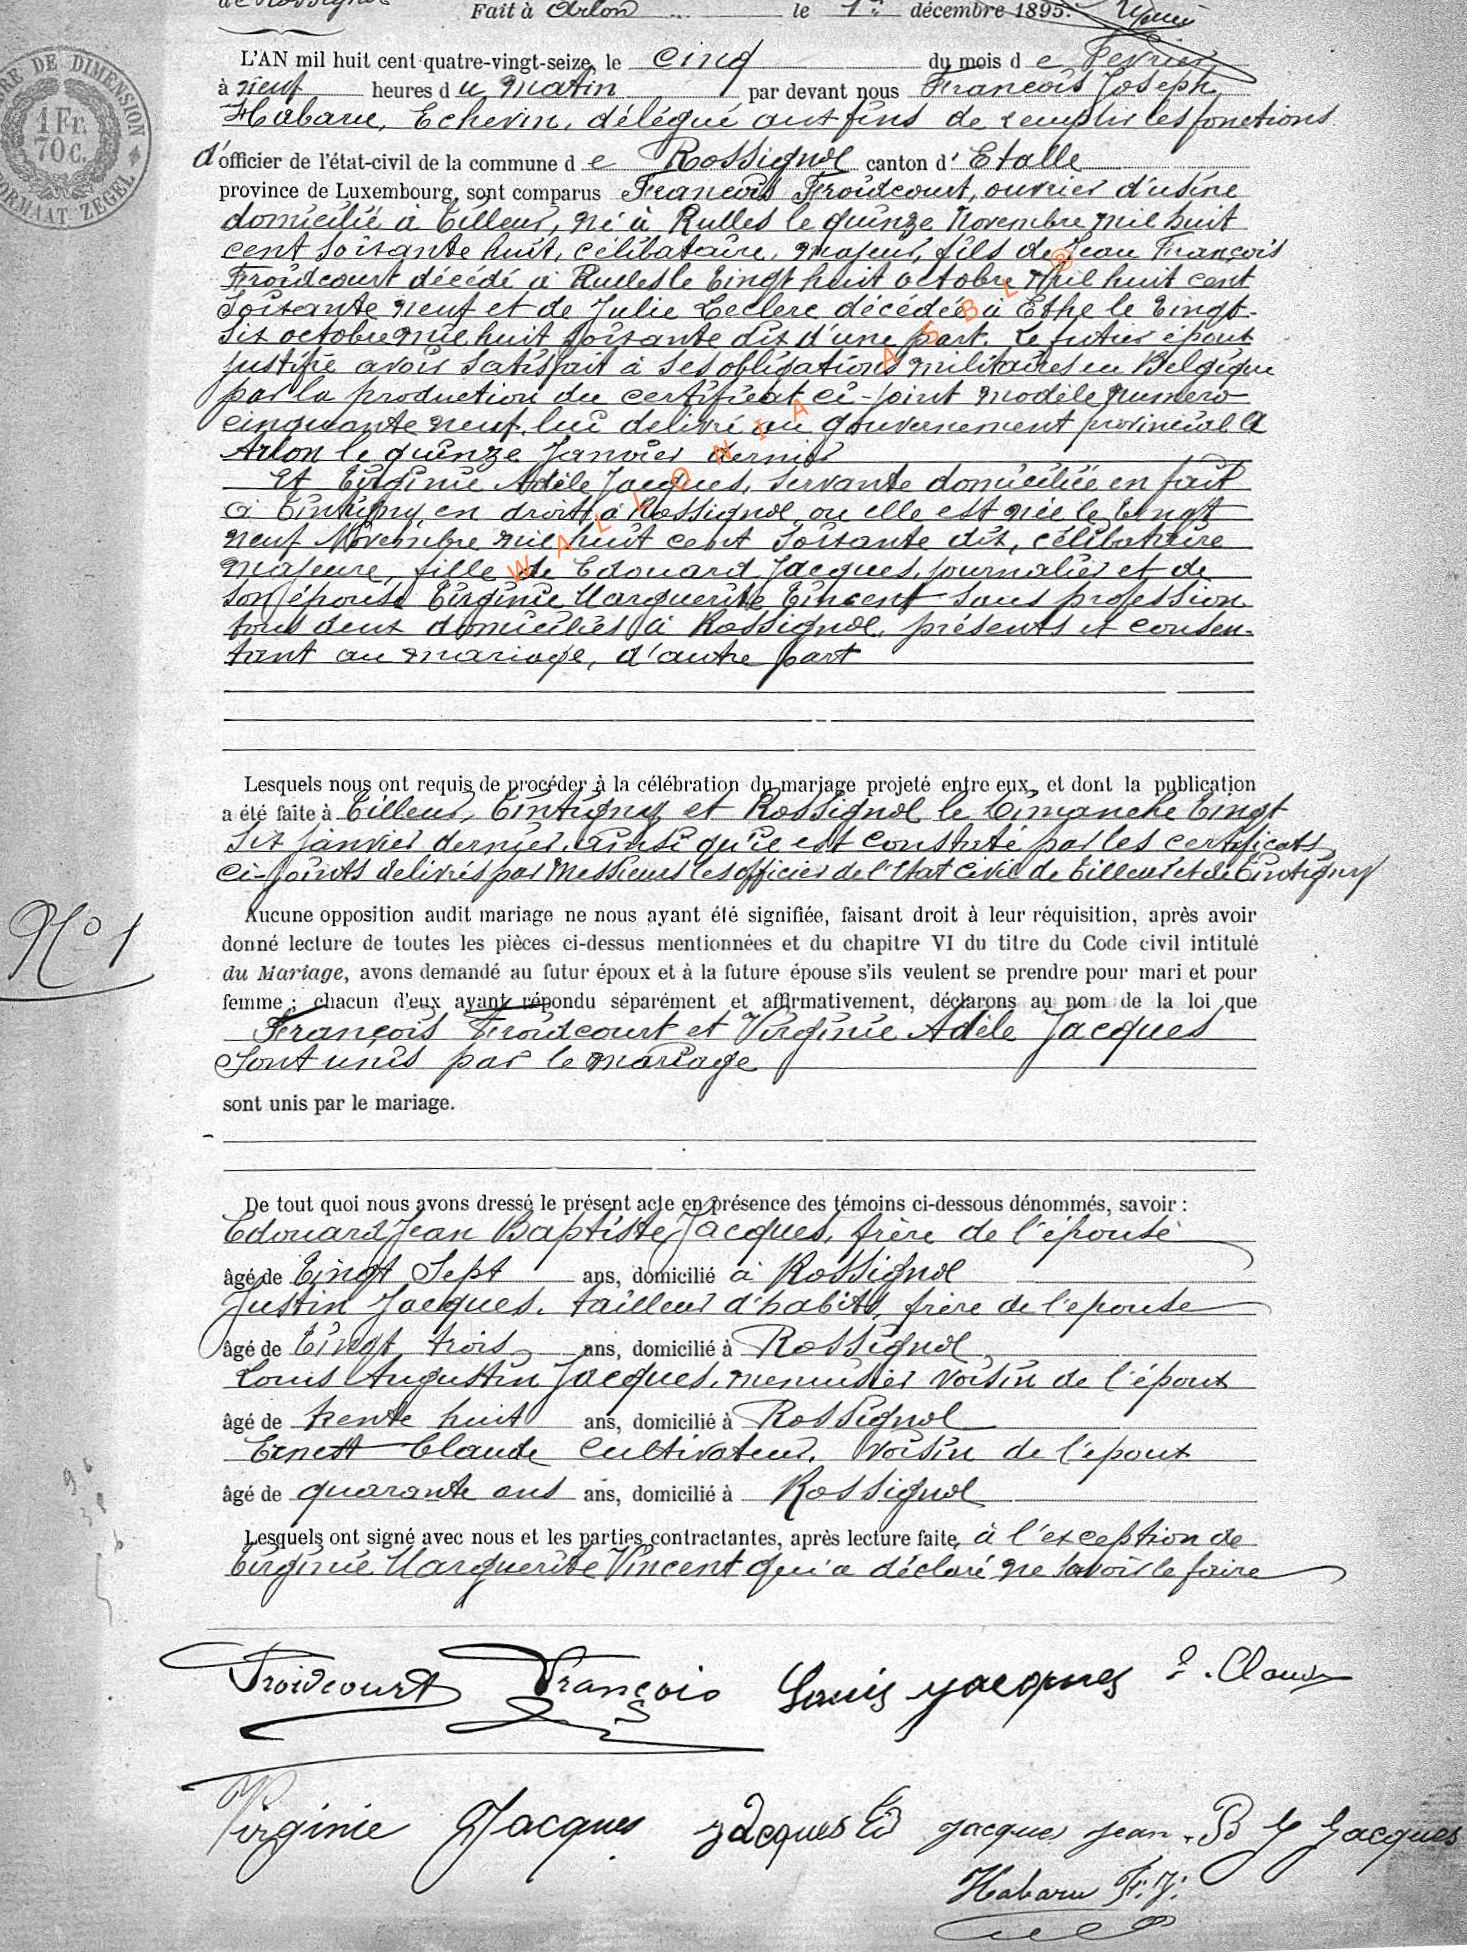 Fait à Arlon le 1er décembre 1895.
TIMBRE DE DIMENSION
1 Fr.
70 c.
FORMAAT ZEGEL
L'AN mil huit cent quatre-vingt-seize, le cinq du mois d e Fevrier
à neuf heures d u matin par devant nous François Joseph
Habaru, Echevin, délégué aux fins de remplir les fonctions
d'officier de l'état-civil de la commune d e Rossignol canton d' Etalle
province de Luxembourg, sont comparus François Froidcourt, ouvrier d'usine
domicilié à Tilleur, né à Rulles le quinze Novembre mil huit
cent soixante huit, célibataire, majeur, fils de Jean François
Froidcourt décédé à Rulles le Vingt huit octobre Mil huit cent
soixante neuf et de Julie Leclerc décédée à Ethe le Vingt-
six octobre mil huit soixante dix d'une part. Le futur époux
justifie avoir satisfait à ses obligations militaires en Belgique
par la production du certificat ci-joint modèle numero
cinquante neuf lui delivré au gouvernement provincial a
Arlon le quinze Janvier dernier
Et Virginie Adèle Jacques, servante domiciliée en fait
à Tintigny en droit à Rossignol ou elle est née le Vingt
neuf Novembre mil huit cent soixante dix, célibataire
majeure, fille de Edouard Jacques, journalier et de
son épouse Virginie Marguerite Vincent sans profession
tous deux domiciliés à Rossignol, présents et consen-
tant au mariage, d'autre part
WALLONIA ASBL ®
Lesquels nous ont requis de procéder à la célébration du mariage projeté entre eux, et dont la publication
a été faite à Tilleur, Tintigny et Rossignol le Dimanche Vingt
six janvier dernier, ainsi qu'il est constaté par les certificats
ci-joints delivrés par Messieurs les officier de l'Etat civil de Tilleur et de Tintigny
N° 1
Aucune opposition audit mariage ne nous ayant été signifiée, faisant droit à leur réquisition, après avoir
donné lecture de toutes les pièces ci-dessus mentionnées et du chapitre VI du titre du Code civil intitulé
du Mariage, avons demandé au futur époux et à la future épouse s'ils veulent se prendre pour mari et pour
femme ; chacun d'eux ayant répondu séparément et affirmativement, déclarons au nom de la loi que
François Froidcourt et Virginie Adèle Jacques
sont unis par le mariage
sont unis par le mariage.
De tout quoi nous avons dressé le présent acte en présence des témoins ci-dessous dénommés, savoir :
Edouard Jean Baptiste Jacques, frère de l'épouse
âgé de Vingt Sept ans, domicilié à Rossignol
Justin Jacques, tailleur d'habits, frère de l'epouse
âgé de Vingt trois ans, domicilié à Rossignol
Louis Augustin Jacques, menuisier voisin de l'époux
âgé de trente huit ans, domicilié à Rossignol
Ernest Claude Cultivateur, voisin de l'epoux
âgé de quarante ans ans, domicilié à Rossignol
Lesquels ont signé avec nous et les parties contractantes, après lecture faite, à l'exception de
Virginie Marguerite Vincent qui a déclaré ne savoir le faire
Froidcourt François Louis Jacques E. Claude
Virginie Jacques Jacques Ed Jacques Jean-B J Jacques
Habaru F. J.